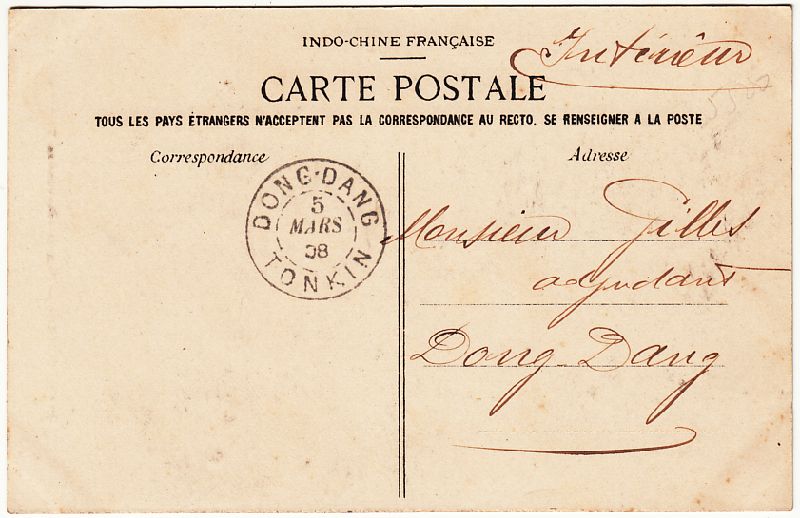 INDO-CHINE FRANÇAISE
Intérieur
CARTE POSTALE
TOUS LES PAYS ÉTRANGERS N'ACCEPTENT PAS LA CORRESPONDANCE AU RECTO. SE RENSEIGNER A LA POSTE
Correspondance
Adresse
DONG-DANG
5
MARS
08
TONKIN
Monsieur Gilles
adjudant
Dong-Dang